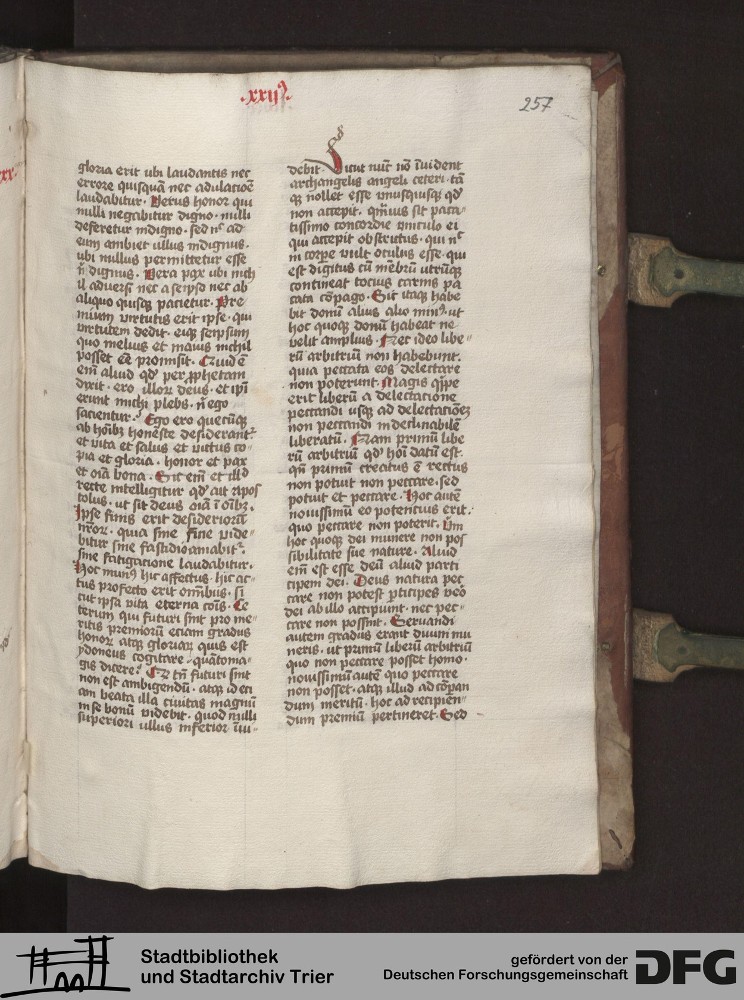 .xxij⁹.
257
gloria erit ubi laudantis nec
errore quisquā nec adulatōe
laudabitur. Verus honor qui
nulli negabitur digno. nulli
deferetur indigno. sed nᶜ ad
eum ambiet ullus indignus.
ubi nullus permittetur esse
n̄ dignus. Vera pax ubi nich
il aduersi nec a seipso nec ab
aliquo quisq̄ pacietur. Pre
mium virtutis erit ipse. qui
virtutem dedit. eiq̄ seipsum
quo melius et maius nichil
posset eē promisit. Quid ē
em̄ aliud qd̓ per ꝓphetam
dixit. ero illoꝝ deus. et ip̄i
erunt michi plebs. n̄ ego
sacientur. Ego ero quecūq̄
ab hoīb₃ honeste desiderantᵗ
et vita et salus et victus co
pia et gloria. honor et pax
et oīa bona. Sic em̄ et illd̓
recte intelligitur qd̓ ait apos
tolus. ut sit deus oīa ī oīb₃.
Ipse finis erit desideriorū
nr̄oꝝ. quia sine fine vide〃
bitur sine fastidio amabitᵗ.
sine fatigatione laudabitur.
Hoc mun⁹ hic affectus. hic ac〃
tus profecto erit omībus. si
cut ipsa vita eterna cōis. Ce
terum qui futuri sint pro me〃
ritis premiorū eciam gradus
honoꝝ atq̄ gloriaꝝ quis est
ydoneus cogitare. quātoma〃
gis dicere? Qd̓ tn̄ futuri sint
non est ambigendū. atq̄ id eci
am beata illa ciuitas magnū
in se bonū videbit. quod nulli
superiori ullus inferior īui〃
debit. Sicut nūc nō īuident
archangelis angeli ceteri. tā
q̄ nollet esse vnusquisq̄ qd̓
non accepit. qm̄uis sit paca〃
tissimo concordie vinculo ei
qui accepit obstrictus. qui nᶜ
in corpe vult oculus esse. qui
est digitus cū mēbrū utrūq̄
contineat tocius carnis pa
cata cōpago. Sic itaq̄ habe
bit donū alius alio min⁹. ut
hoc quoq̄ donū habeat ne
velit amplius. Nec ideo libe〃
rū arbitriū non habebunt.
quia peccata eos delectare
non poterunt. Magis q̄ppe
erit liberū a delectatione
peccandi usq̄ ad delectationē
non peccandi indeclinabilē
liberatū. Nam primū libe
rū arbitriū qd̓ hoī datū est.
qn̄ primū creatus ē rectus
non potuit non peccare. sed
potuit et peccare. Hoc autē
nouissimū eo potencius erit.
quo peccare non poterit. Vm̄
hoc quoq̄ dei munere non pos
sibilitate sue nature. Aliud
em̄ est esse deū aliud parti
cipem dei. Deus natura pec
care non potest ꝑticipes veō
dei ab illo accipiunt. nec pec〃
care non possint. Seruandi
autem gradus erant diuini mu
neris. ut primū liberū arbitriū
quo non peccare posset homo.
nouissimū autē quo peccare
non posset. atq̄ illud ad cōꝑan
dum meritū. hoc ad recipien〃
dum premiū pertineret. Sed
Stadtbibliothek
und Stadtarchiv Trier
gefördert von der
Deutschen Forschungsgemeinschaft
DFG